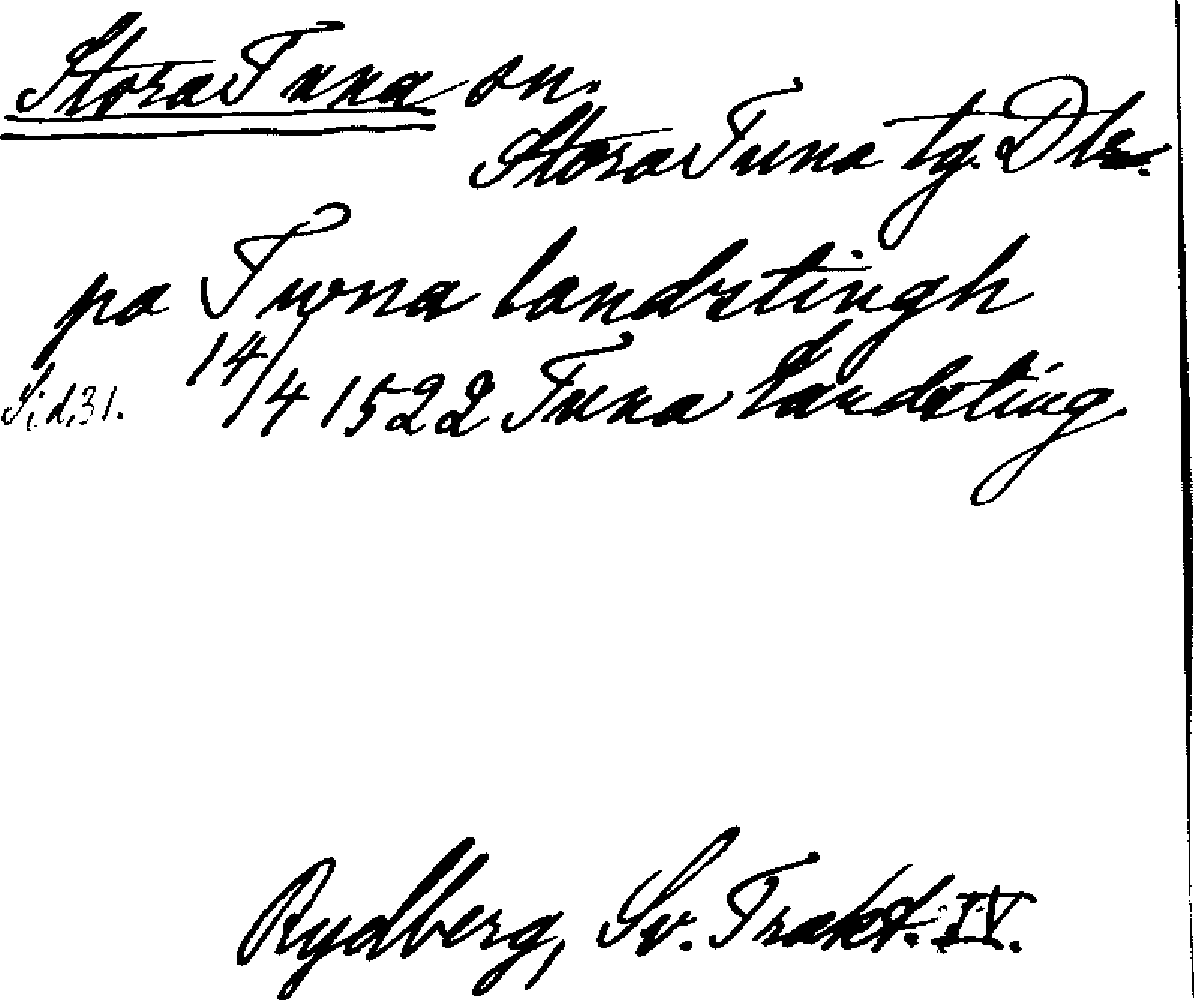 Stora Tuna sn.
Stora Tuna tg. Dlr.
pa Twna landztingh
Sid. 31. 14/4 1522 Tuna Landsting.
Rydberg, Sv. Trakt. IV.